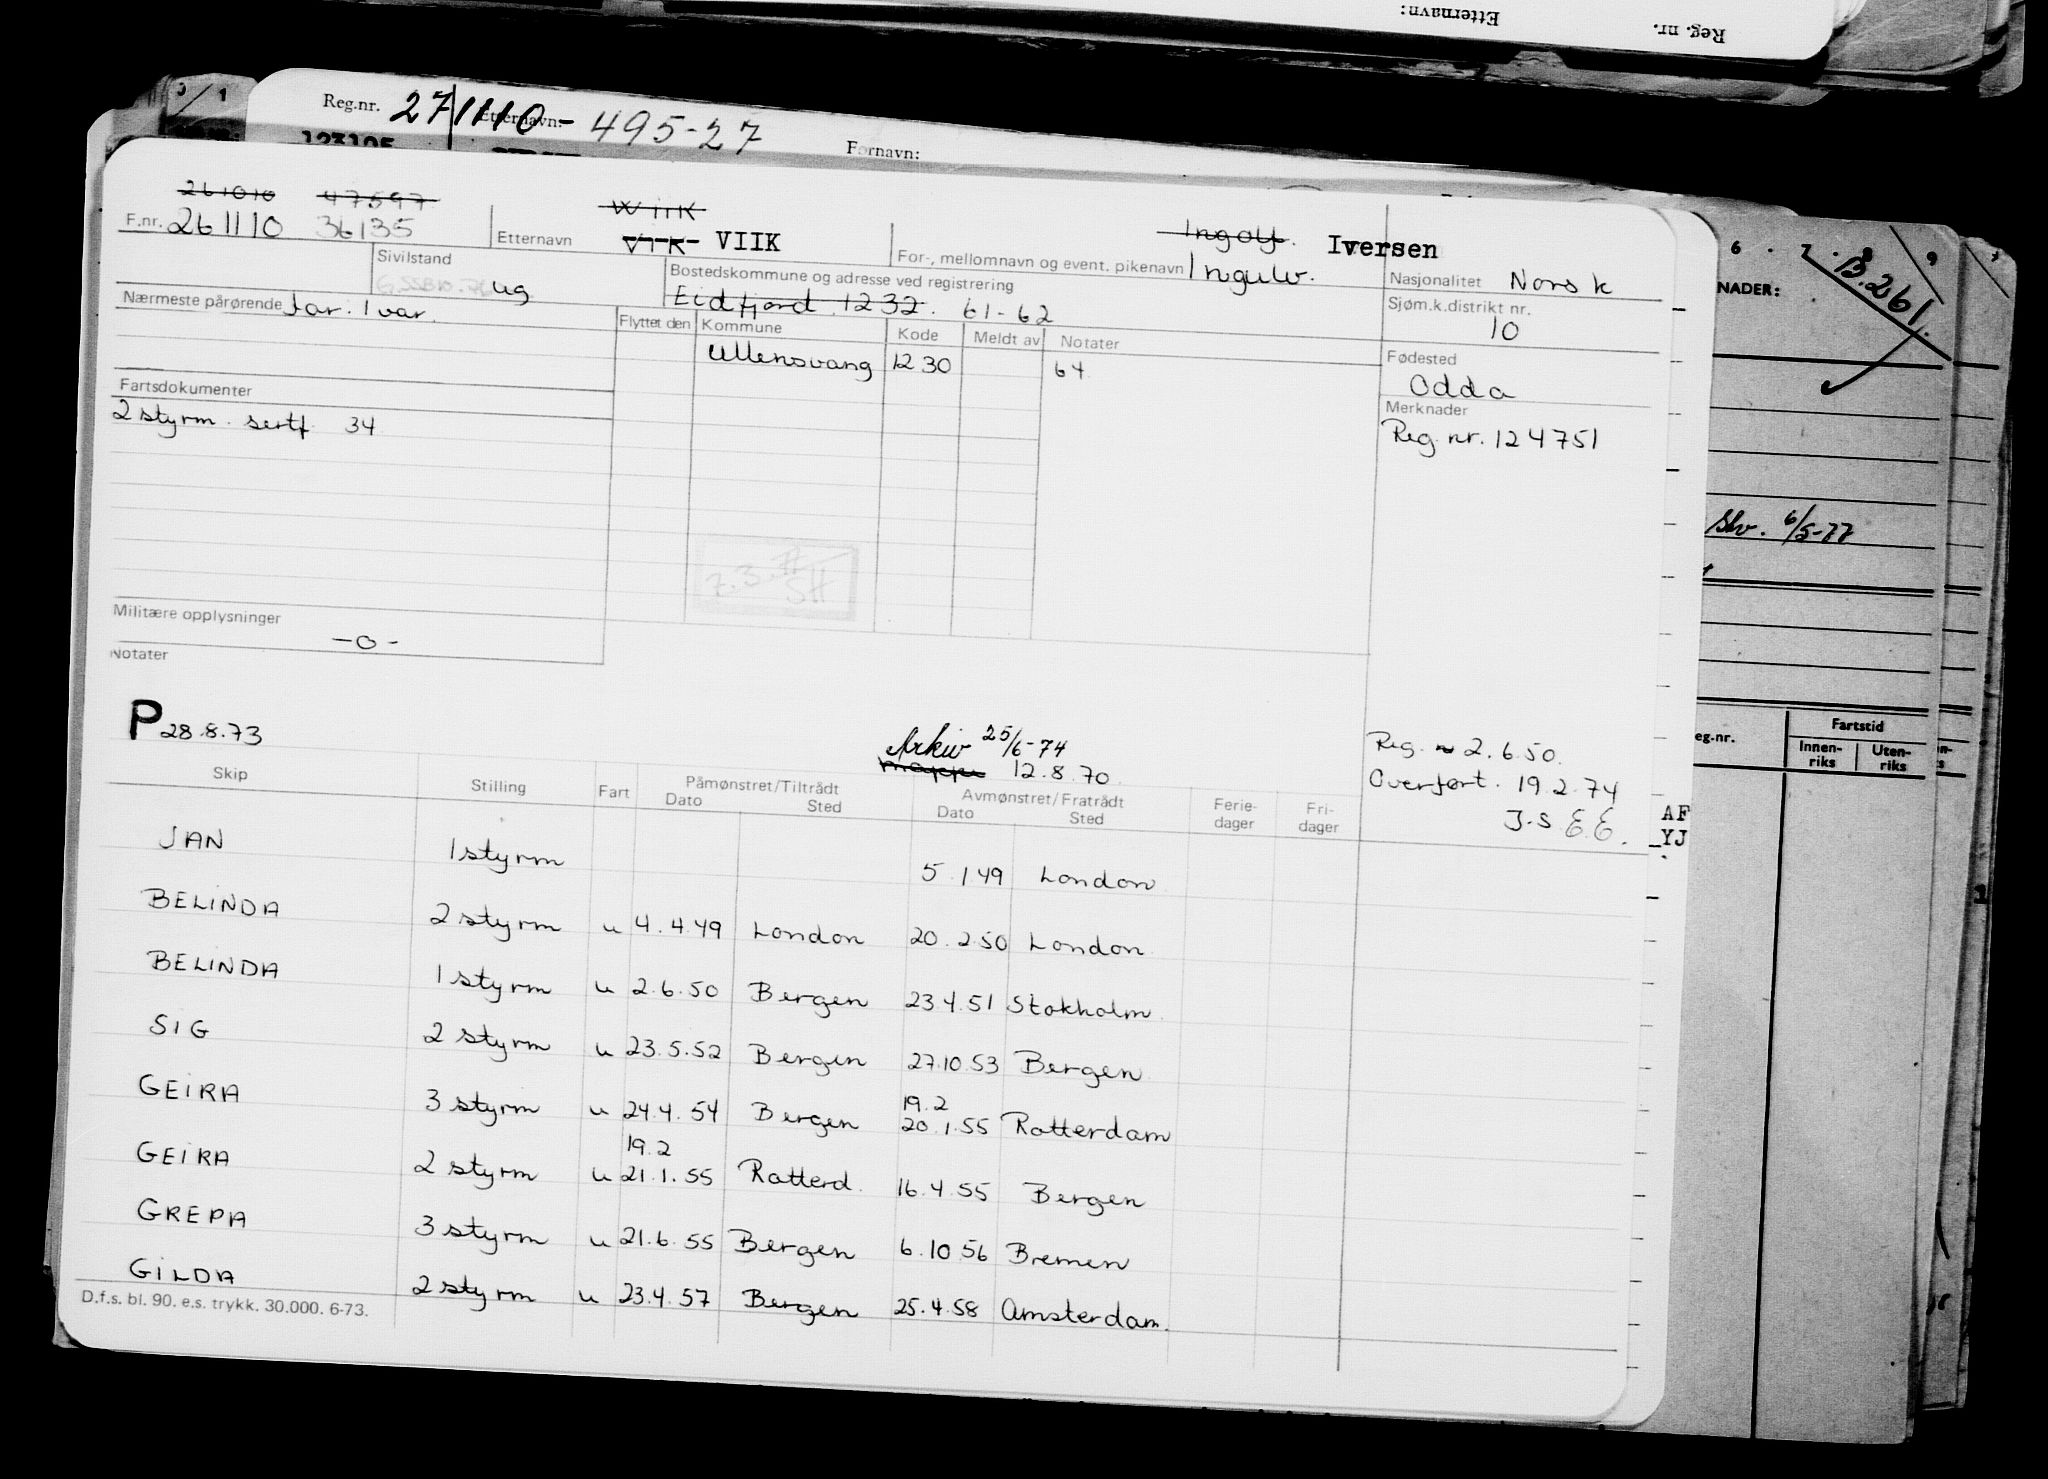 Etternavn:
Reg. nr.
Reg.nr. 271110- Etternavn: 495-27 Fornavn:
123105
261010 47597 Wiik Ingolf.
F.nr. 261110 36135 Etternavn Vik VIIK For-, mellomnavn og event. pikenavn Ingulv. Iversen
Nasjonalitet Norsk
Sivilstand ug
Bostedskommune og adresse ved registrering
Eidfjord 1232. 61-62
Sjøm.k.distrikt nr.
10
Nærmeste pårørende Far: Ivar.
Flyttet den Kommune Kode Meldt av Notater
Ullensvang 1230 64
Fødested
Odda
Fartsdokumenter
2 styrm. sertf 34
Merknader
Reg. nr. 124751
7.3.77
SH
Militære opplysninger
-o-
Notater
P 28.8.73
Arkiv 25/6-74
mappe 12.8.70.
Reg. 2.6.50.
Overført. 19.2.74
J.S EE.
AF
YJ
Skip Stilling Fart Påmønstret/Tiltrådt Avmønstret/Fratrådt Ferie- Fri-
Dato Sted Dato Sted dager dager
JAN 1 styrm 5.1 49 London
BELINDA 2 styrm u 4.4.49 London 20.2.50 London
BELINDA 1 styrm u 2.6.50 Bergen 23.4.51 Stokholm
SIG 2 styrm u 23.5.52 Bergen 27.10.53 Bergen
19.2
GEIRA 3 styrm u 24.4.54 Bergen 20.1.55 Rotterdam
19.2
GEIRA 2 styrm u 21.1.55 Rotterd. 16.4.55 Bergen
GREPA 3 styrm u 21.6.55 Bergen 6.10 56 Bremen
GILDA 2 styrm u 23.4.57 Bergen 25.4.58 Amsterdam.
D.f.s. bl. 90. e.s. trykk. 30.000. 6-73.
6 . 7 . 8 9
B.261.
NADER:
Slv. 6/5-77
eg.nr. Fartstid
Innen- Uten-
riks riks